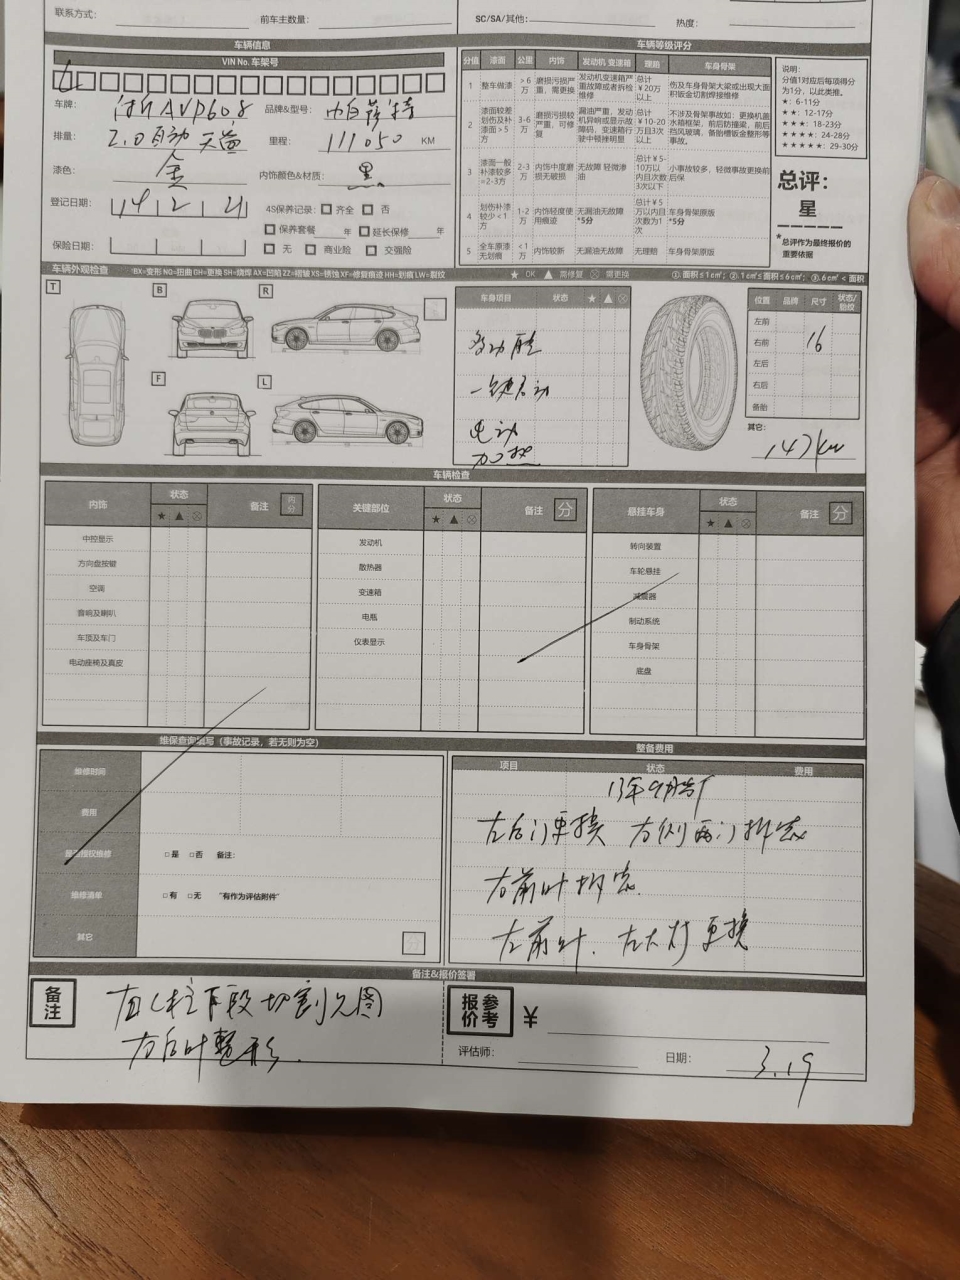 联系方式:
前车主数量:
SC/SA/其他:
热度:
车辆信息
VIN No. 车架号
L
车牌: 浙AVP60.8 品牌&型号: 帕萨特
排量: 2.0自动 天窗 里程: 111050 KM
漆色: 金 内饰颜色&材质: 黑
登记日期: 14 2 21 4S保养记录: 齐全 否
保养套餐 年 延长保修 年
保险日期: 无 商业险 交强险
车辆等级评分
分值 漆面 公里 内饰 发动机 变速箱 理赔 车身骨架
1 整车做漆 >6万 磨损污损严重，需更换 发动机变速箱严重故障或者拆检维修 总计¥20万以上 伤及车身骨架大梁或出现大面积钣金切割焊接维修
2 漆面较差划伤及补漆面>5方 3-6万 磨损污损较严重，可修复 漏油严重，发动机异响或显示故障码，变速箱行驶中顿挫明显 总计¥10-20万目3次以上 不涉及骨架事故如：更换机盖水箱框架，前后防撞梁，前后挡风玻璃，备胎槽钣金整形等事故。
3 漆面一般补漆较多=2-3方 2-3万 内饰中度磨损无破损 无故障 轻微渗油 总计¥5-10万以内目次数3次以下 小事故较多，轻微事故更换前后保
4 划伤补漆较少<1方 1-2万 内饰轻度使用痕迹 无漏油无故障*5分 总计¥5万以内目次数为1次 车身骨架原版*5分
5 全车原漆无划痕 <1万 内饰较新 无漏油无故障 无理赔 车身骨架原版
说明:
分值1对应后每项得分为1分，以此类推。
★: 6-11分
★★: 12-17分
★★★: 18-23分
★★★★: 24-28分
★★★★★: 29-30分
总评:
星
*总评作为最终报价的重要依据
车辆外观检查 BX=变形 NQ=扭曲 GH=更换 SH=烧焊 AX=凹陷 ZZ=褶皱 XS=锈蚀 XF=修复痕迹 HH=划痕 LW=裂纹 ★ OK ▲ 需修复 ⊗ 需更换 ①.面积≤1cm²; ②.1cm²≤面积≤6cm²; ③.6cm²<面积
T B R
F L
车身项目 状态 ★ ▲ ⊗
一键启动
电动
加热
位置 品牌 尺寸 状态/胎纹
左前
右前 16
左后
右后
备胎
其它:
147kw
车辆检查
内饰 状态 ★ ▲ ⊗ 备注 内分
中控显示
方向盘按键
空调
音响及喇叭
车顶及车门
电动座椅及真皮
关键部位 状态 ★ ▲ ⊗ 备注 分
发动机
散热器
变速箱
电瓶
仪表显示
悬挂车身 状态 ★ ▲ ⊗ 备注 分
转向装置
车轮悬挂
减震器
制动系统
车身骨架
底盘
维保查询填写（事故记录，若无则为空）
维修时间
费用
是否授权维修 □是 □否 备注:
维修清单 □有 □无 "有作为评估附件"
其它 分
整备费用
项目 状态 费用
13年9月出厂
左后门更换 右侧两门拆忘
右前叶拆忘
左前叶. 左大灯更换
备注&报价签署
备注
右C柱下段切割见图
右后叶整形.
报价参考 ¥
评估师: 日期: 3.19